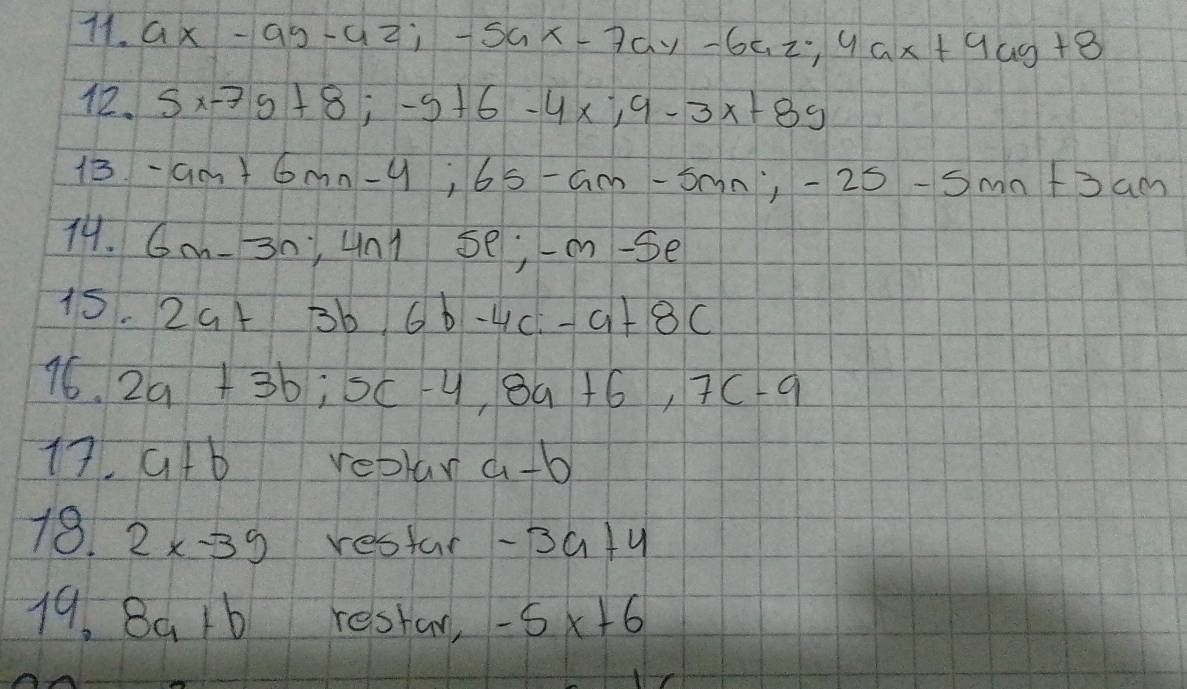 11. ax - ay - az; -5ax - 7ay - 6az; 4ax + 9ay + 8
12. 5x - 7y + 8; -y + 6 - 4x; 9 - 3x + 8y
13. -am + 6mn - 4; 6s - am - 5mn; -2s - 5mn + 3am
14. 6m - 3n; 4n + 5p; -m - 5p
15. 2a + 3b, 6b - 4c; -a + 8c
16. 2a + 3b; 5c - 4, 8a + 6, 7c - 9
17. a + b restar a - b
18. 2x - 3y restar - 3a + 4
19. 8a + b restar, -5x + 6